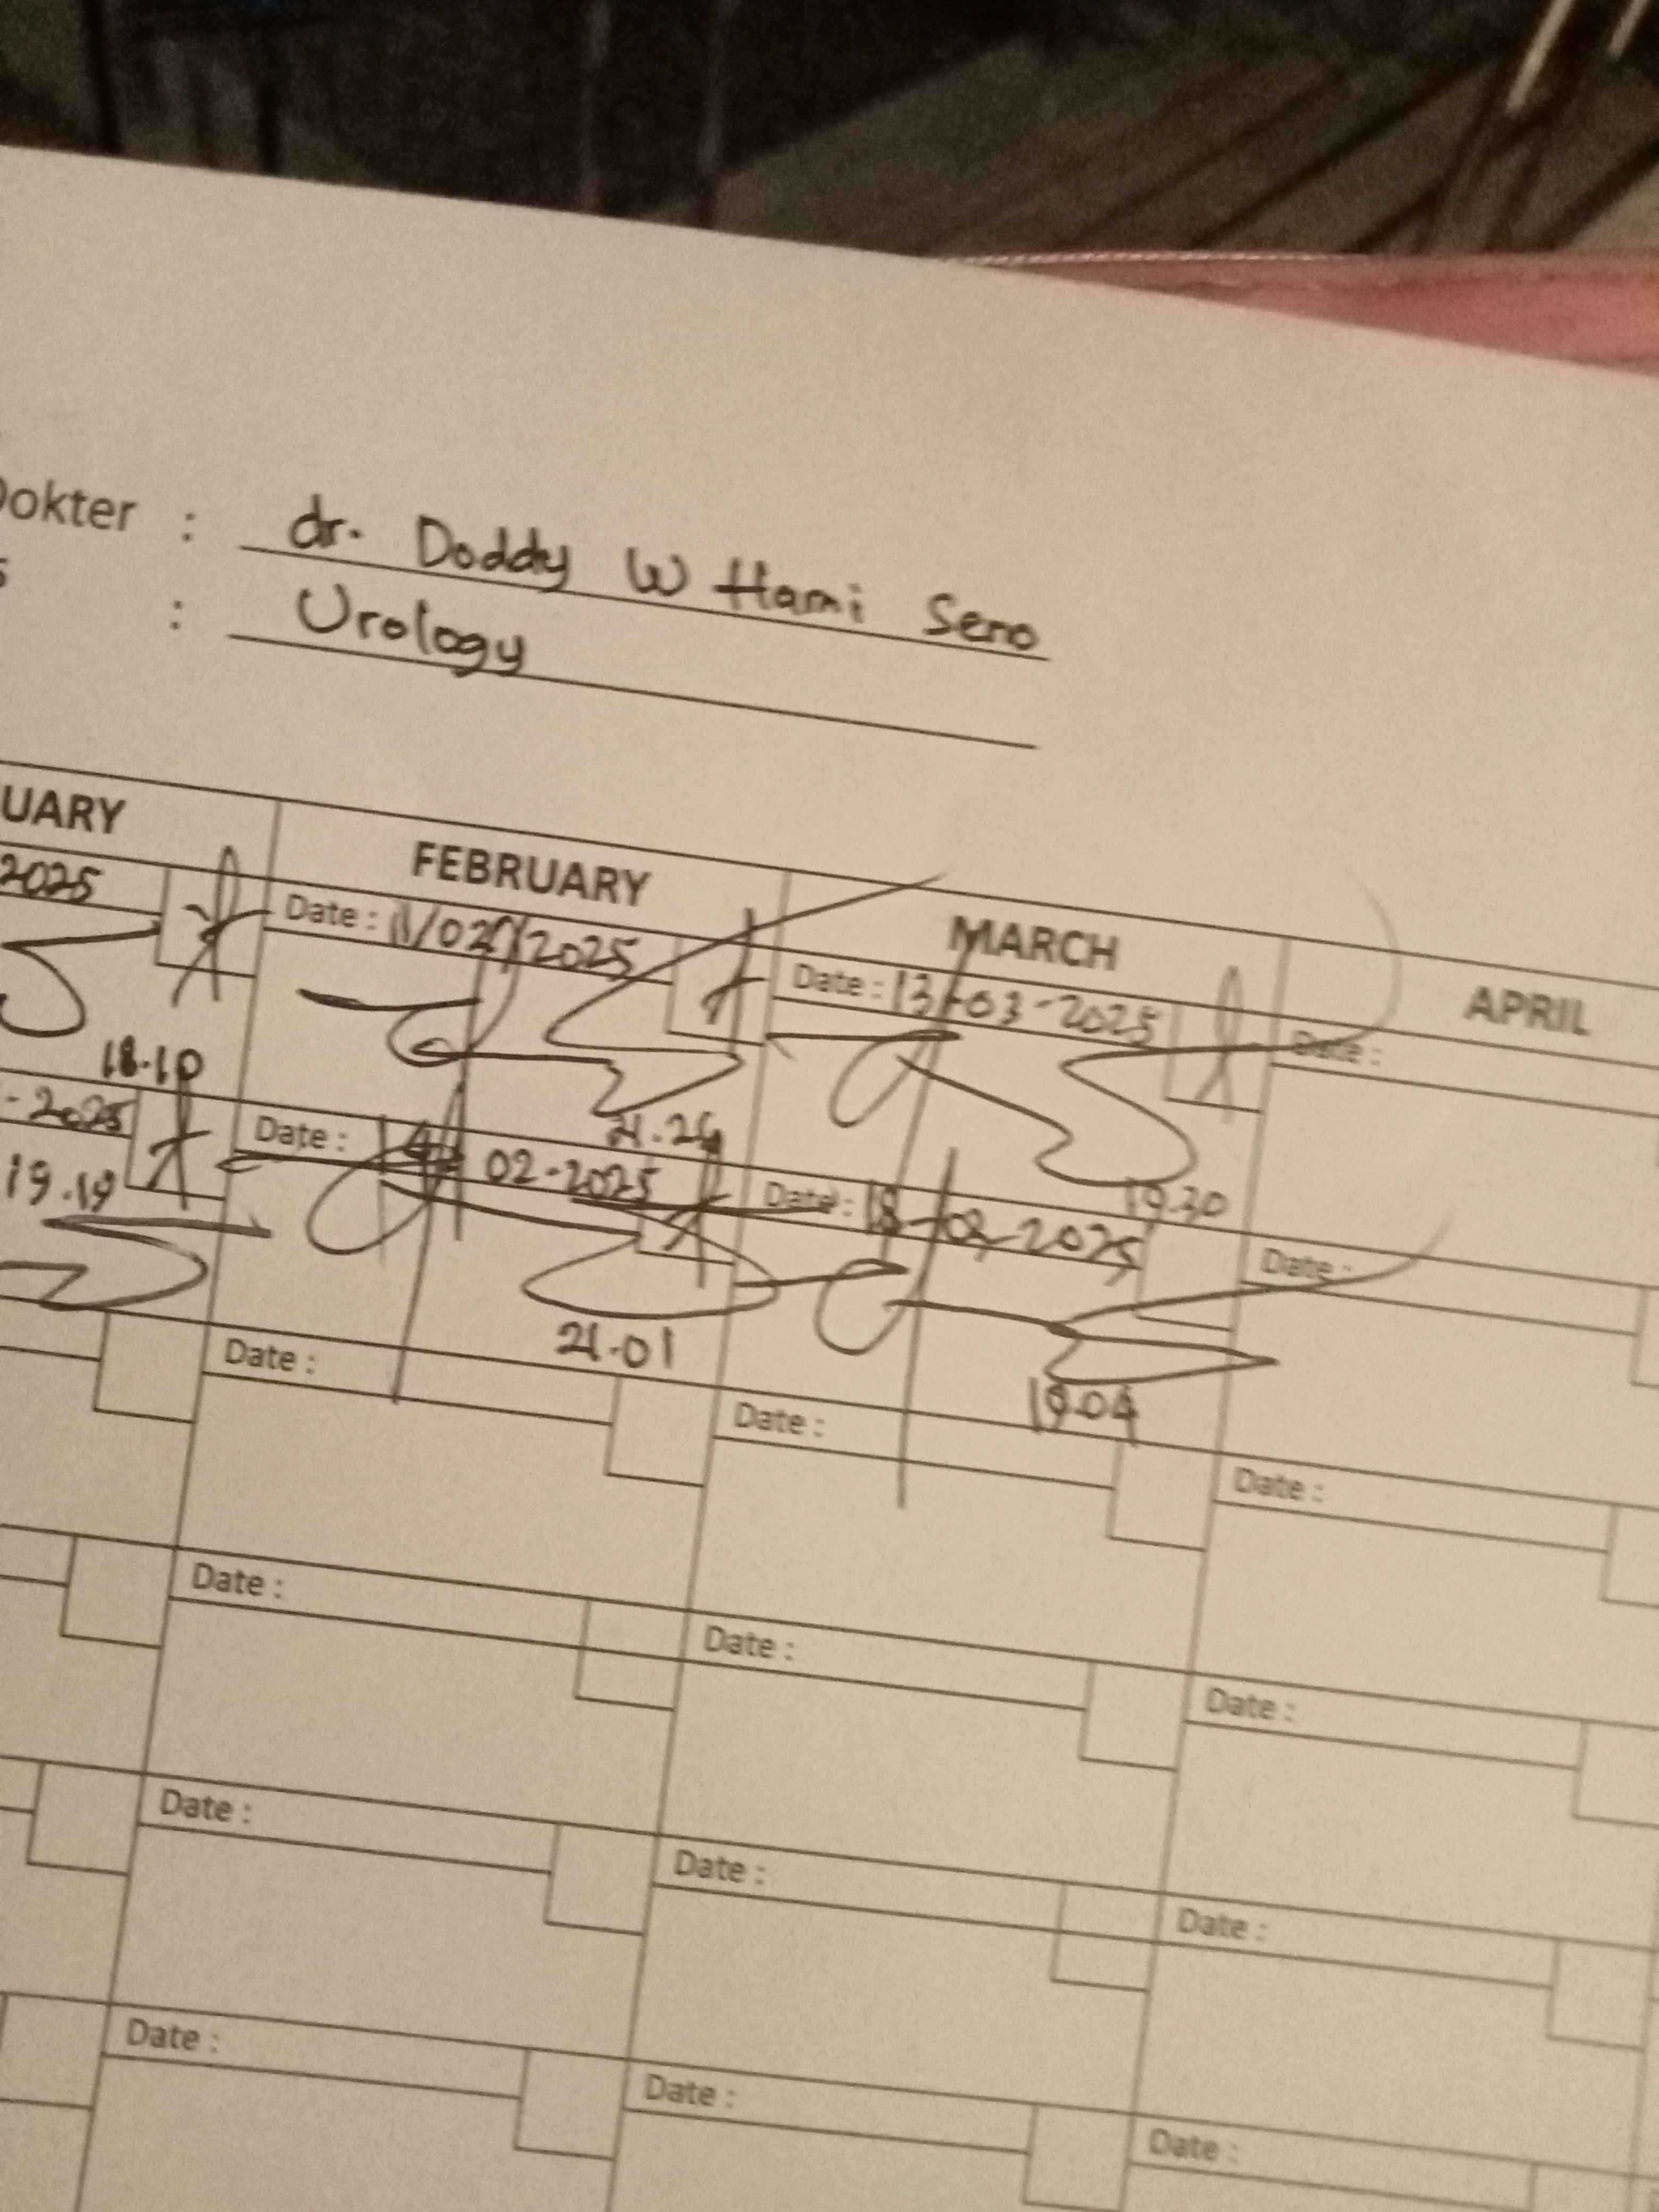 Dokter : dr. Doddy W Hami Seno
: Urology
UARY FEBRUARY MARCH APRIL
2025 Date : 11/02/2025 Date : 13-03-2025 Date :
18.10 19.30
-2025 Date : 02-2025 Date : 18-03-2025 Date :
19.19 21.01 19.04
Date : Date : Date :
Date : Date : Date :
Date : Date : Date :
Date : Date : Date :